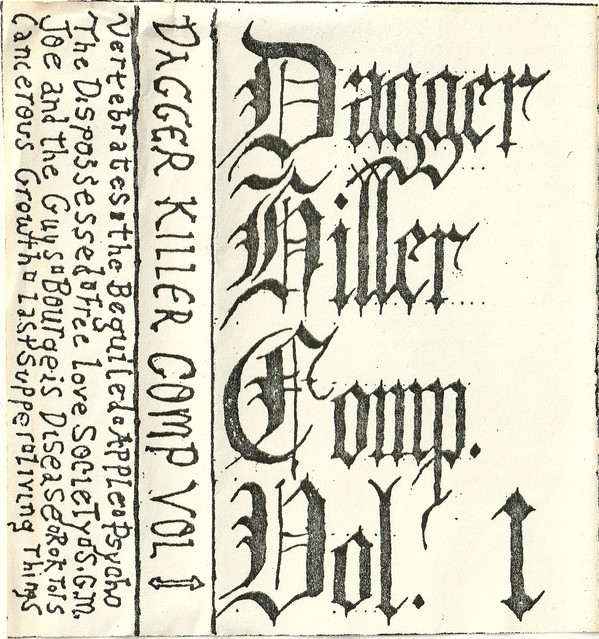 Dagger
Killer
Comp.
Vol. 1
DAGGER KILLER COMP VOL 1
Vertebrates • the Beguiled • Apple • Psycho
The Dispossessed • Free Love Society • S.G.M.
Joe and the Guys • Bourgeis Disease • Rok Tots
Cancerous Growth • Last Supper • Living Things